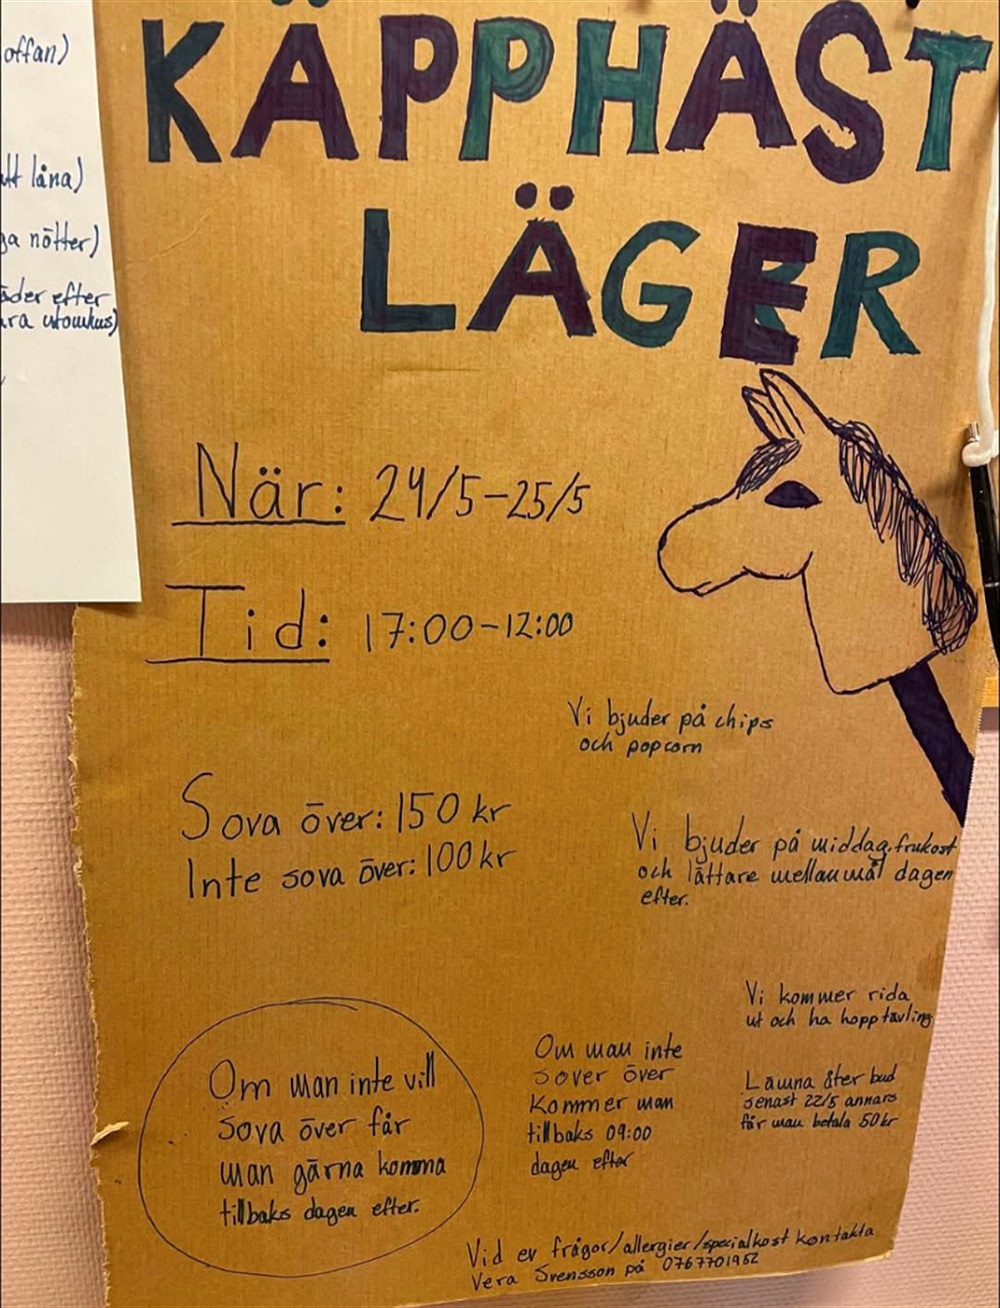 offan)
att låna)
ga nötter)
äder efter
ara utomhus)
KÄPPHÄST
LÄGER
När: 24/5-25/5
Tid: 17:00-12:00
Vi bjuder på chips
och popcorn
Sova över: 150 kr
Inte sova över: 100 kr
Vi bjuder på middag, frukost
och lättare mellanmål dagen
efter.
Vi kommer rida
ut och ha hopptävling
Om man inte vill
sova över får
man gärna komma
tillbaks dagen efter.
Om man inte
sover över
kommer man
tillbaks 09:00
dagen efter
Lämna återbud
senast 22/5 annars
får man betala 50 kr
Vid ev frågor/allergier/specialkost kontakta
Vera Svensson på 0767701952